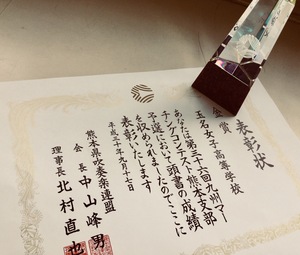 表彰状
金賞
玉名女子高等学校
あなたは第三十六回九州マー
チングコンテスト熊本支部
予選において頭書の成績
を収められましたのでここに
表彰いたします
平成三十年九月十七日
熊本県吹奏楽連盟
会長 中山峰男
理事長 北村直也